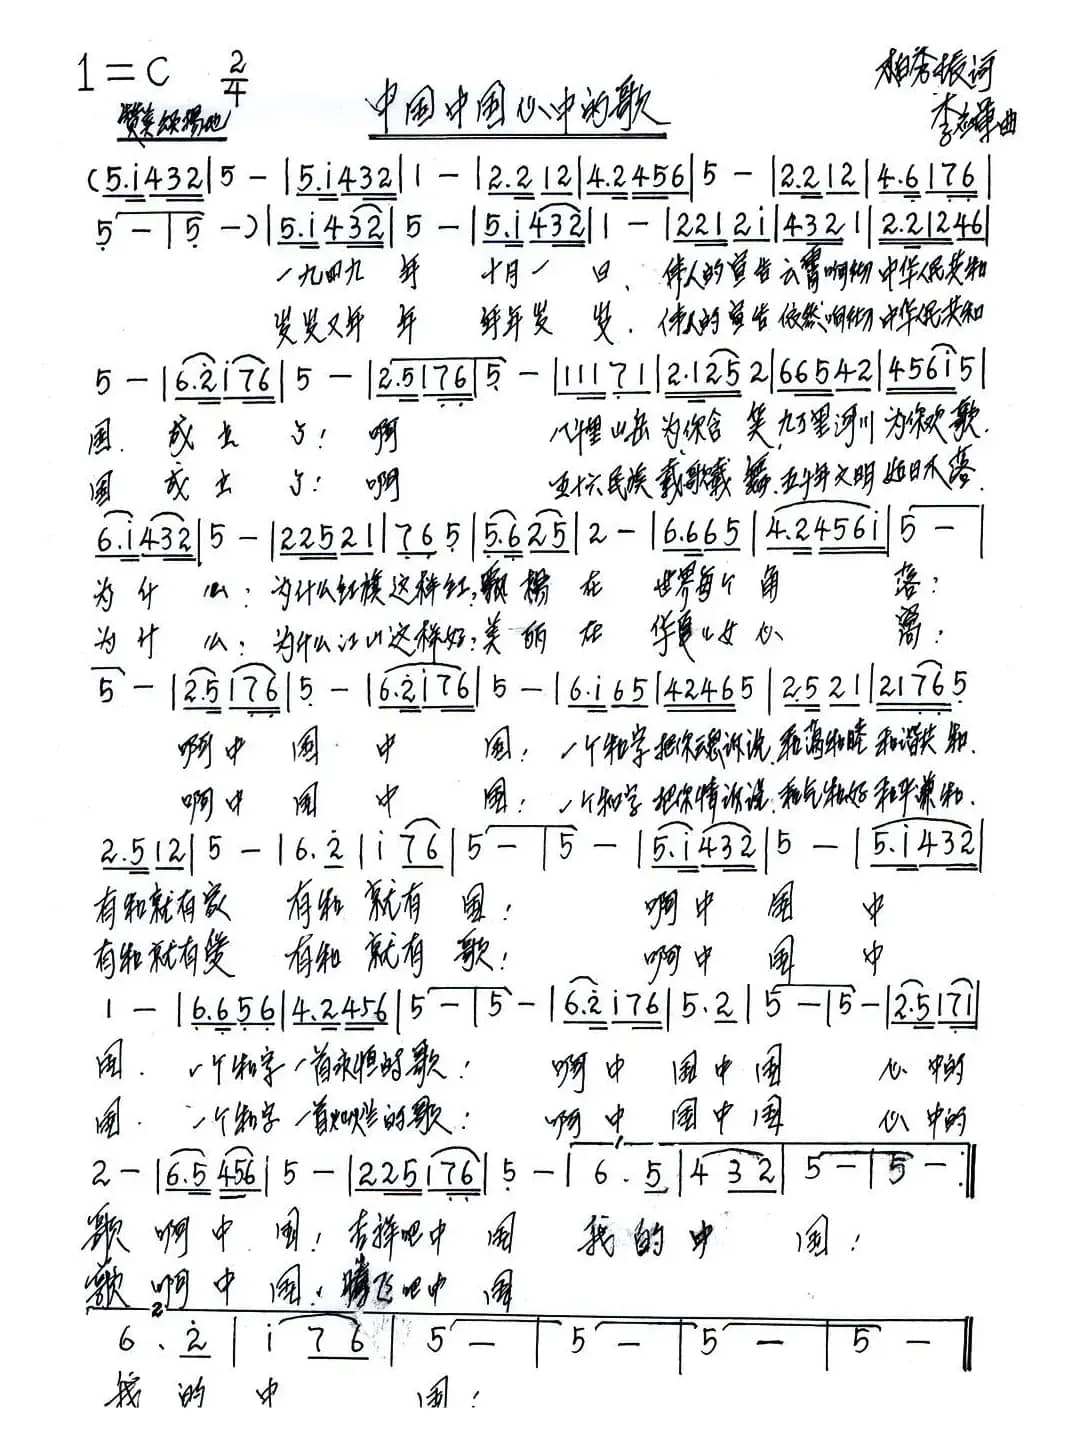 1=C 2/4
中国中国心中的歌
柏秀振词
李志辉曲
赞美颂扬地
(5.i432|5 -|5.i432|1 -|2.212|4.2456|5 -|2.212|4.6176|
5 -|5 -)|5.i432|5 -|5.i432|1 -|2212i|4321|2.21246|
一九四九 年 十月一 日、伟人的宣告云霄响彻中华人民共和
岁岁又年 年 年年岁 岁.伟人的宣告依然响彻中华人民共和
5 -|6.2i76|5 -|2.5176|5 -|11171|2.1252|66542|456i5|
国. 成 立 了! 啊 八千里山岳为你含 笑,九万里河川为你欢歌.
国 成 立 了! 啊 五十六民族载歌载 舞.五千年文明 日不落.
6.i432|5 -|22521|765|5.625|2 -|6.665|4.2456i|5 -|
为 什 么; 为什么红旗这样红;飘扬 在 世界每个 角 落;
为 什 么; 为什么江山这样好;美 丽 在 华夏儿女 心 窝;
5 -|2.5176|5 -|6.2i76|5 -|6.i65|42465|2.521|21765
啊 中 国 中 国; 一个和字把你魂诉说.和蔼和睦和谐共和.
啊 中 国 中 国; 一个和字把你情诉说.和气和好和平谦和.
2.512|5 -|6.2|i76|5 -|5 -|5.i432|5 -|5.i432|
有和就有家 有和 就有 国; 啊 中 国 中
有和就有爱 有和 就有 歌; 啊 中 国 中
1 -|6.656|4.2456|5 -|5 -|6.2i76|5.2|5 -|5 -|2.5171|
国. 一个和字一首永恒的歌; 啊 中 国 中 国 心 中的
国. 一个和字一首灿烂的歌; 啊 中 国 中 国 心 中的
2 -|6.5456|5 -|225176|5 -|6.5|432|5 -|5 -:‖
歌 啊 中 国;吉祥吧中 国 我 的 中 国;
歌 啊 中 国;腾飞吧中 国
2
6.2|i76|5 -|5 -|5 -|5 -‖
我 的 中 国;